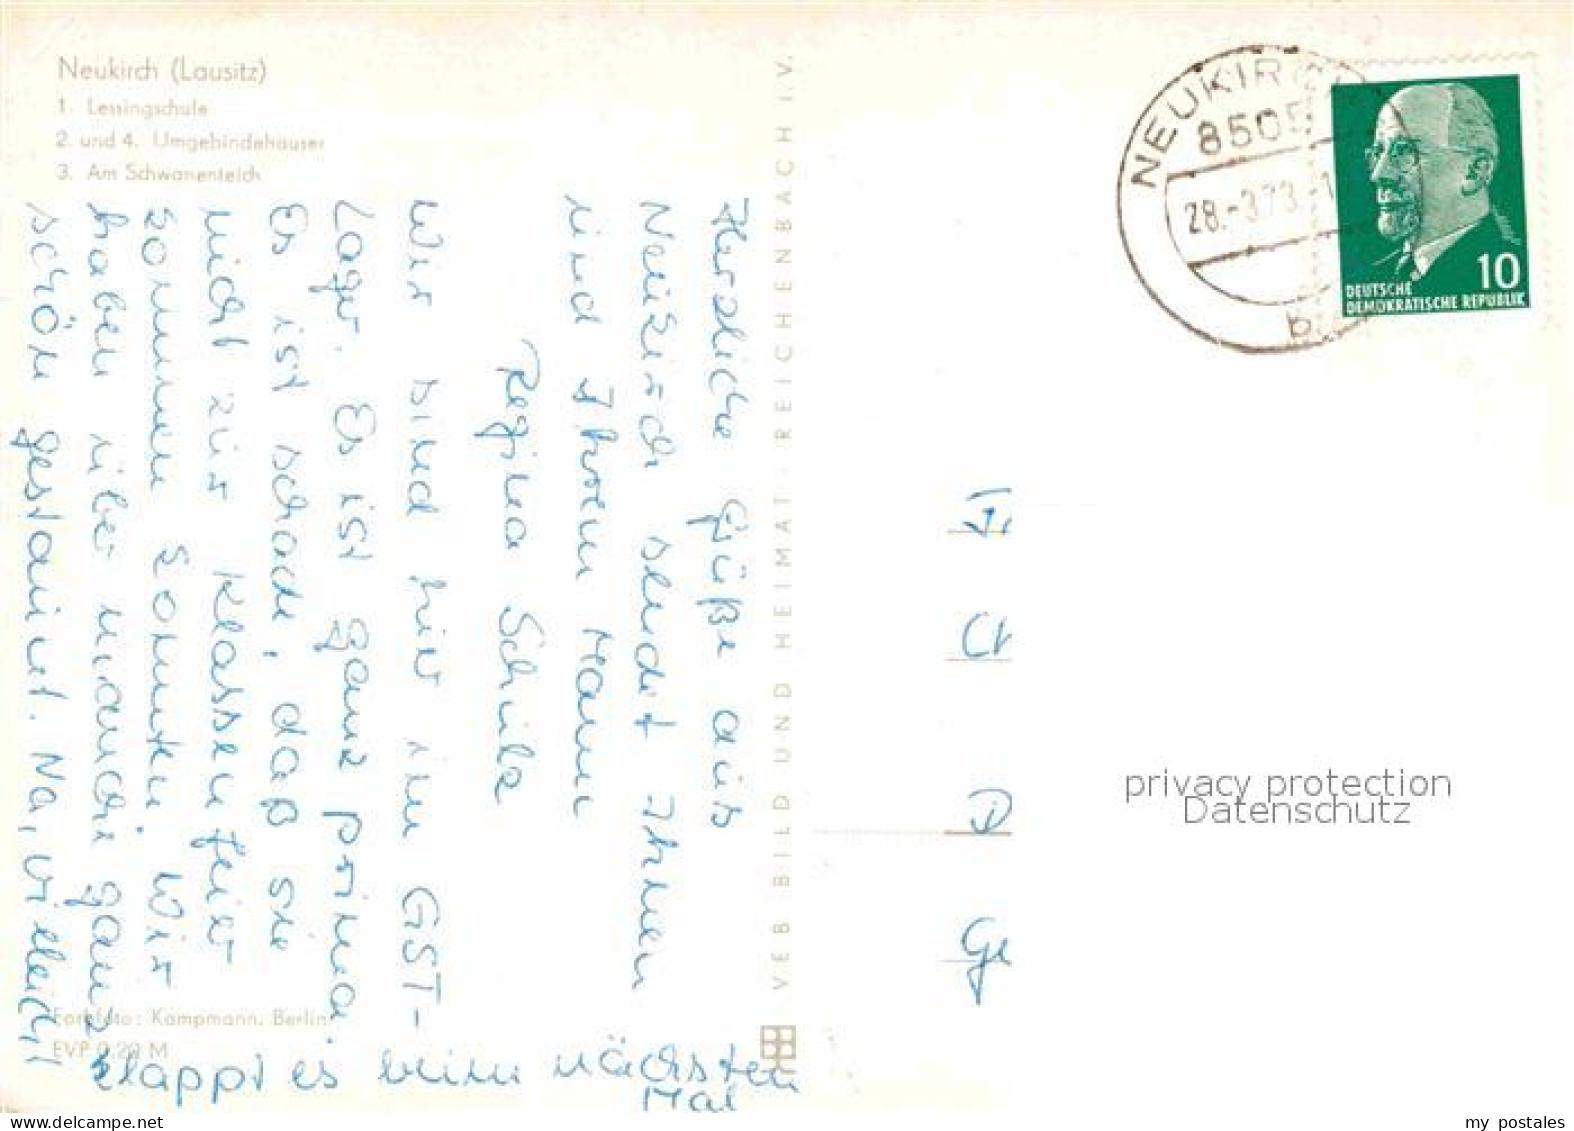 Neukirch (Lausitz)
1. Lessingschule
2. und 4. Umgebindehäuser
3. Am Schwanenteich
Herzliche Grüße aus
Neukirch sendet Ihnen
und Ihrem Mann
Regina Schulz
Wir sind hier im GST-
Lager. Es ist ganz prima.
Es ist schade, daß sie
nicht zur Klassenfeier
kommen konnten. Wir
haben über manche ganz
schön gestaunt. Na, vielleicht
klappt es beim nächsten
Mal
Farbfoto: Kampmann, Berlin
EVP 0,20 M
VEB BILD UND HEIMAT · REICHENBACH I. V.
NEUKIRCH
8505
28.-3.73.-1
b
10
DEUTSCHE
DEMOKRATISCHE REPUBLIK
D
Ge
privacy protection
Datenschutz
www.delcampe.net
my_postales